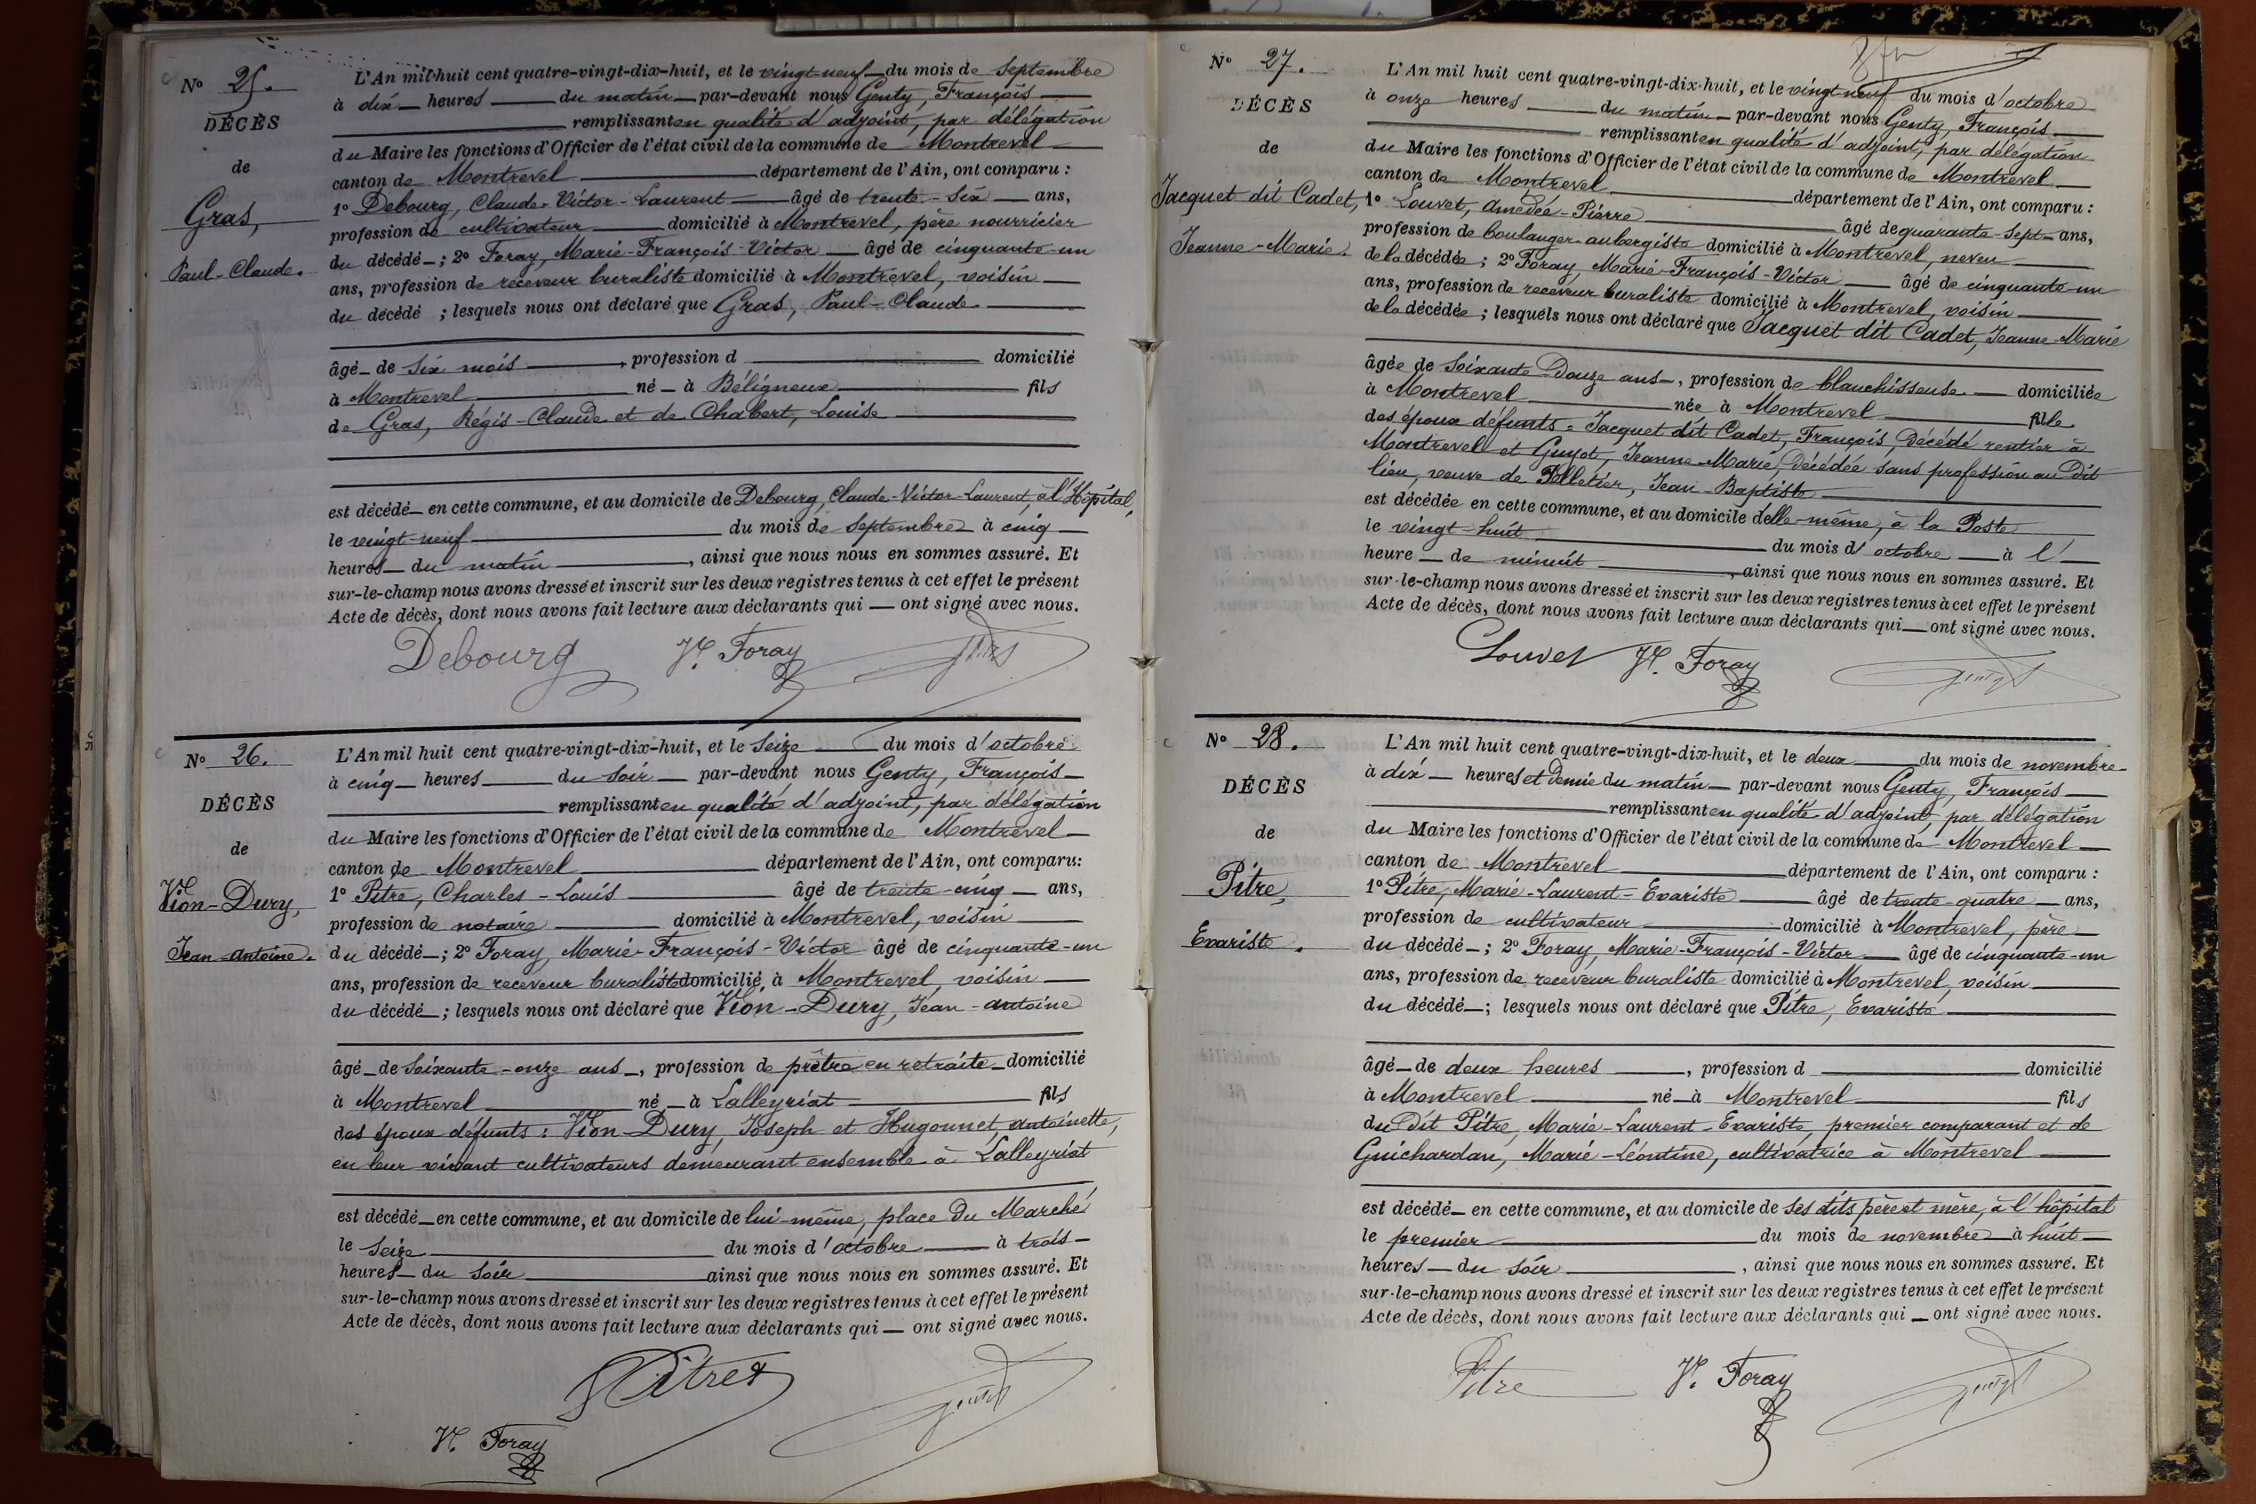 Nº 25.
DÉCÈS
de
Gras,
Paul-Claude.
L'An mil huit cent quatre-vingt-dix-huit, et le vingt-neuf du mois de Septembre
à dix heures du matin par-devant nous Genty, François
remplissant en qualité d'adjoint, par délégation
du Maire les fonctions d'Officier de l'état civil de la commune de Montrevel
canton de Montrevel département de l'Ain, ont comparu :
1º Debourg, Claude-Victor-Laurent âgé de trente-six ans,
profession de cultivateur domicilié à Montrevel, père nourricier
du décédé ; 2º Foray, Marie-François-Victor âgé de cinquante-un
ans, profession de receveur buraliste domicilié à Montrevel, voisin
du décédé ; lesquels nous ont déclaré que Gras, Paul-Claude
âgé de six mois, profession d domicilié
à Montrevel né à Béligneux fils
de Gras, Régis-Claude et de Chabert, Louise
est décédé en cette commune, et au domicile de Debourg, Claude-Victor-Laurent, à l'Hôpital,
le vingt-neuf du mois de Septembre à cinq
heures du matin, ainsi que nous nous en sommes assuré. Et
sur-le-champ nous avons dressé et inscrit sur les deux registres tenus à cet effet le présent
Acte de décès, dont nous avons fait lecture aux déclarants qui ont signé avec nous.
Debourg Vr. Foray Genty
Nº 26.
DÉCÈS
de
Vion-Dury,
Jean-Antoine.
L'An mil huit cent quatre-vingt-dix-huit, et le Seize du mois d'octobre
à cinq heures du soir par-devant nous Genty, François
remplissant en qualité d'adjoint, par délégation
du Maire les fonctions d'Officier de l'état civil de la commune de Montrevel
canton de Montrevel département de l'Ain, ont comparu:
1º Pitre, Charles-Louis âgé de trente-cinq ans,
profession de notaire domicilié à Montrevel, voisin
du décédé ; 2º Foray, Marie-François-Victor âgé de cinquante-un
ans, profession de receveur buraliste domicilié à Montrevel, voisin
du décédé ; lesquels nous ont déclaré que Vion-Dury, Jean-Antoine
âgé de soixante-onze ans, profession de prêtre en retraite domicilié
à Montrevel né à Lalleyriat fils
des époux défunts : Vion-Dury, Joseph et Hugonnet, Antoinette,
en leur vivant cultivateurs demeurant ensemble à Lalleyriat
est décédé en cette commune, et au domicile de lui-même, place du Marché
le Seize du mois d'octobre à trois
heures du soir ainsi que nous nous en sommes assuré. Et
sur-le-champ nous avons dressé et inscrit sur les deux registres tenus à cet effet le présent
Acte de décès, dont nous avons fait lecture aux déclarants qui ont signé avec nous.
Pitre
Vr. Foray Genty
Nº 27.
DÉCÈS
de
Jacquet dit Cadet,
Jeanne-Marie.
L'An mil huit cent quatre-vingt-dix-huit, et le vingt-neuf du mois d'octobre
à onze heures du matin par-devant nous Genty, François
remplissant en qualité d'adjoint, par délégation
du Maire les fonctions d'Officier de l'état civil de la commune de Montrevel
canton de Montrevel département de l'Ain, ont comparu :
1º Louvet, Amédée-Pierre âgé de quarante-sept ans,
profession de boulanger-aubergiste domicilié à Montrevel, neveu
de la décédée ; 2º Foray, Marie-François-Victor âgé de cinquante-un
ans, profession de receveur buraliste domicilié à Montrevel, voisin
de la décédée ; lesquels nous ont déclaré que Jacquet dit Cadet, Jeanne-Marie
âgée de soixante-Douze ans, profession de blanchisseuse domiciliée
à Montrevel née à Montrevel fille
des époux défunts : Jacquet dit Cadet, François, décédé rentier à
Montrevel et Guyot, Jeanne-Marie, décédée sans profession au dit
lieu, veuve de Pelletier, Jean-Baptiste
est décédée en cette commune, et au domicile d'elle-même, à la Poste
le vingt-huit du mois d'octobre à l'
heure de minuit, ainsi que nous nous en sommes assuré. Et
sur-le-champ nous avons dressé et inscrit sur les deux registres tenus à cet effet le présent
Acte de décès, dont nous avons fait lecture aux déclarants qui ont signé avec nous.
Louvet Vr. Foray Genty
Nº 28.
DÉCÈS
de
Pitre,
Evariste.
L'An mil huit cent quatre-vingt-dix-huit, et le deux du mois de novembre
à dix heures et demie du matin par-devant nous Genty, François
remplissant en qualité d'adjoint, par délégation
du Maire les fonctions d'Officier de l'état civil de la commune de Montrevel
canton de Montrevel département de l'Ain, ont comparu :
1º Pitre, Marie-Laurent-Evariste âgé de trente-quatre ans,
profession de cultivateur domicilié à Montrevel, père
du décédé ; 2º Foray, Marie-François-Victor âgé de cinquante-un
ans, profession de receveur buraliste domicilié à Montrevel, voisin
du décédé ; lesquels nous ont déclaré que Pitre, Evariste
âgé de deux heures, profession d domicilié
à Montrevel né à Montrevel fils
du dit Pitre, Marie-Laurent-Evariste, premier comparant et de
Guichardan, Marie-Léontine, cultivatrice à Montrevel
est décédé en cette commune, et au domicile de ses dits père et mère, à l'hôpital
le premier du mois de novembre à huit
heures du soir, ainsi que nous nous en sommes assuré. Et
sur-le-champ nous avons dressé et inscrit sur les deux registres tenus à cet effet le présent
Acte de décès, dont nous avons fait lecture aux déclarants qui ont signé avec nous.
Pitre Vr. Foray Genty